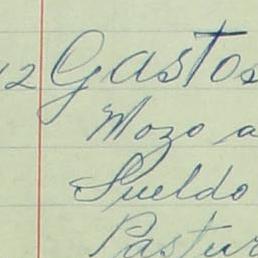 12 Gastos
Mozo a
Sueldo
Pastur